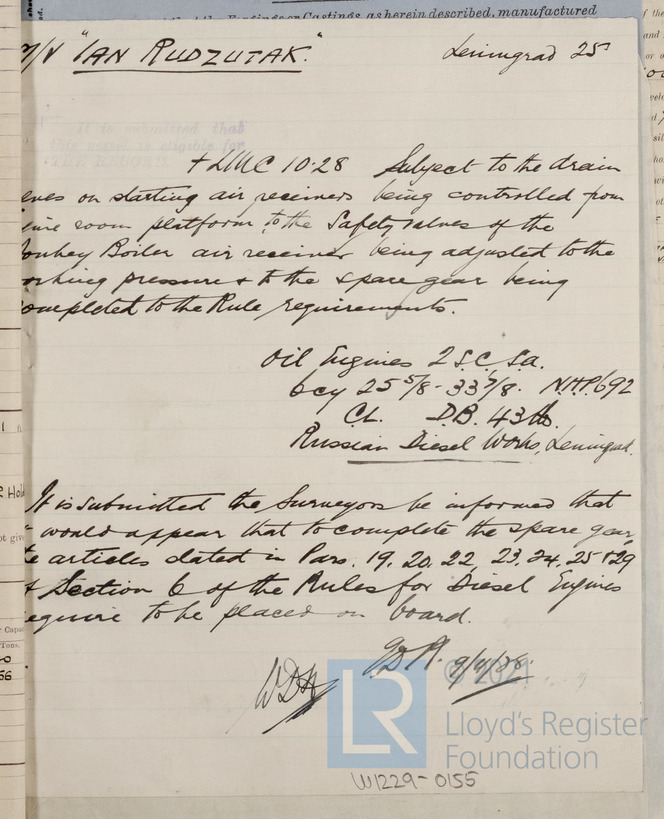 that the Engines or Castings, as herein described, manufactured
M/V "IAN RUDZUTAK." Leningrad 25
It is submitted that
this vessel is eligible for
THE RECORD
+ LMC 10.28 Subject to the drain
on starting air receivers being controlled from
room platform, to the Safety valves of the
Donkey Boiler air receiver being adjusted to the
working pressure & to the spare gear being
completed to the Rule requirements.
Oil Engines 2 S.C. Sa.
6cy 25 5/8 - 33 7/8. NHP 692
CL. D.B. 43 lb.
Russian Diesel Works, Leningrad.
It is submitted the Surveyors be informed that
would appear that to complete the spare gear
articles dated in Pars. 19. 20. 22. 23. 24. 25 & 29
Section 6 of the Rules for Diesel Engines
require to be placed on board.
© 2021
LR
Lloyd's Register
Foundation
W1229-0155